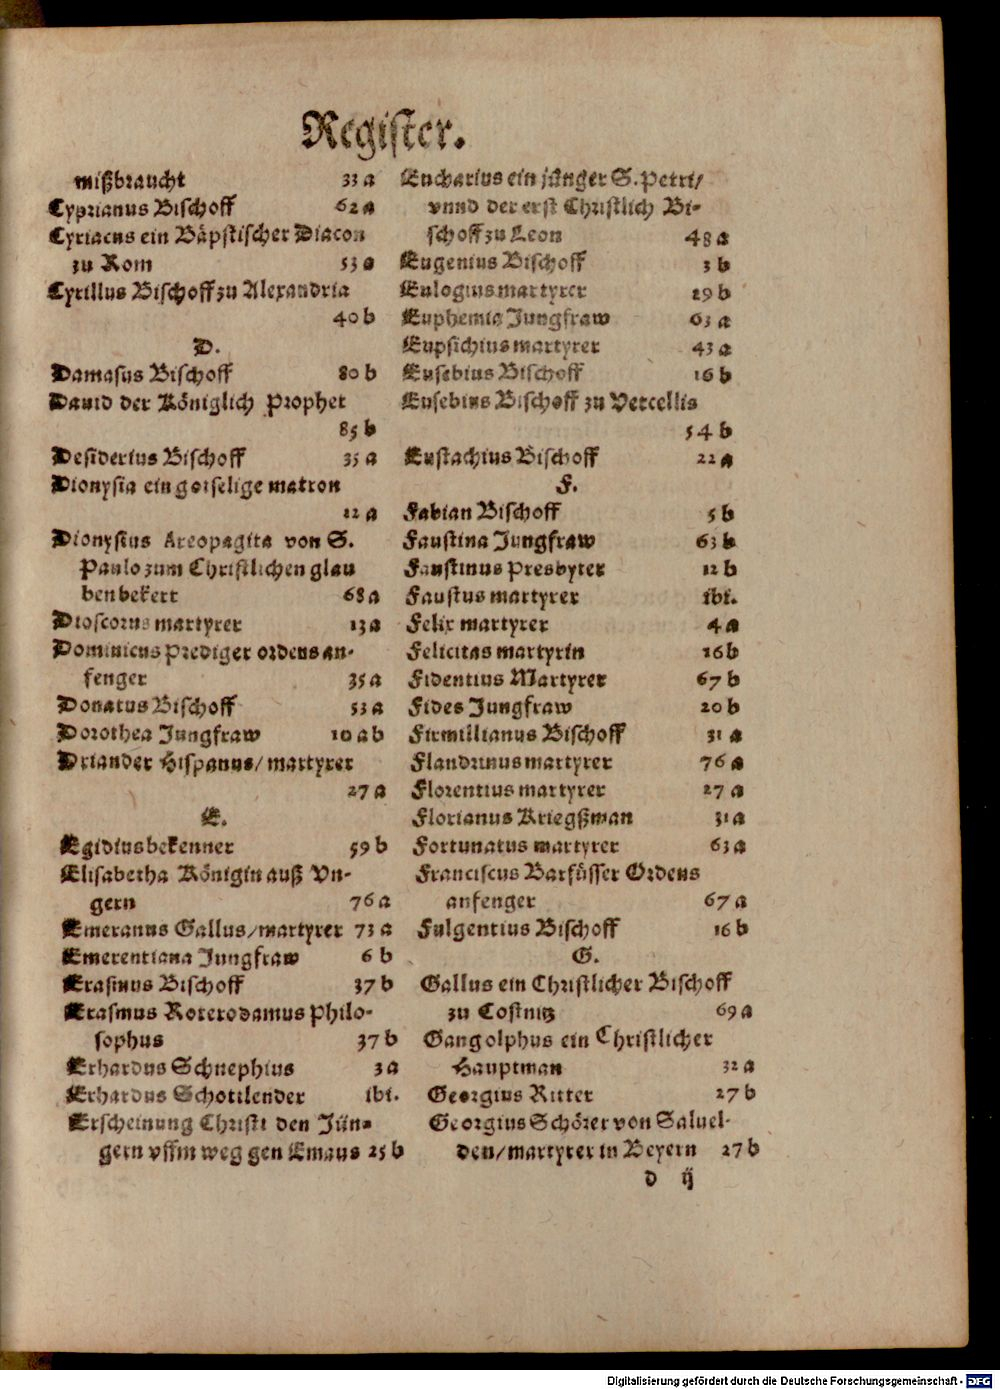 Register.
mißbraucht 33 a
Cyprianus Bischoff 62 a
Cyriacus ein Bäpstischer Diacon
zu Rom 53 a
Cyrillus Bischoff zu Alexandria
40 b
D.
Damasus Bischoff 80 b
Dauid der Königlich Prophet
85 b
Desiderius Bischoff 35 a
Dionysia ein gotselige matron
12 a
Dionysius Areopagita von S.
Paulo zum Christlichen glau
ben bekert 68 a
Dioscorus martyrer 13 a
Dominicus prediger ordens an-
fenger 35 a
Donatus Bischoff 53 a
Dorothea Jungfraw 10 a b
Driander Hispanus/ martyrer
27 a
E.
Egidius bekenner 59 b
Elisabetha Königin auß Vn-
gern 76 a
Emeranus Gallus/martyrer 73 a
Emerentiana Jungfraw 6 b
Erasmus Bischoff 37 b
Erasmus Roterodamus philo-
sophus 37 b
Erhardus Schnephius 3 a
Erhardus Schottlender ibi.
Erscheinung Christi den Jün-
gern vffm weg gen Emaus 25 b
Eucharius ein jünger S. Petri/
vnnd der erst Christlich Bi-
schoff zu Leon 48 a
Eugenius Bischoff 3 b
Eulogius martyrer 29 b
Euphemia Jungfraw 63 a
Eupsichius martyrer 43 a
Eusebius Bischoff 16 b
Eusebius Bischoff zu Vercellis
54 b
Eustachius Bischoff 22 a
F.
Fabian Bischoff 5 b
Faustina Jungfraw 63 b
Faustinus Presbyter 12 b
Faustus martyrer ibi.
Felix martyrer 4 a
Felicitas martyrin 16 b
Fidentius Martyrer 67 b
Fides Jungfraw 20 b
Firmillianus Bischoff 31 a
Flandrinus martyrer 76 a
Florentius martyrer 27 a
Florianus Kriegßman 31 a
Fortunatus martyrer 63 a
Franciscus Barfüsser Ordens
anfenger 67 a
Fulgentius Bischoff 16 b
G.
Gallus ein Christlicher Bischoff
zu Costnitz 69 a
Gangolphus ein Christlicher
Hauptman 32 a
Georgius Ritter 27 b
Georgius Schörer von Saluel-
den/martyrer in Beyern 27 b
d ij
Digitalisierung gefördert durch die Deutsche Forschungsgemeinschaft - DFG